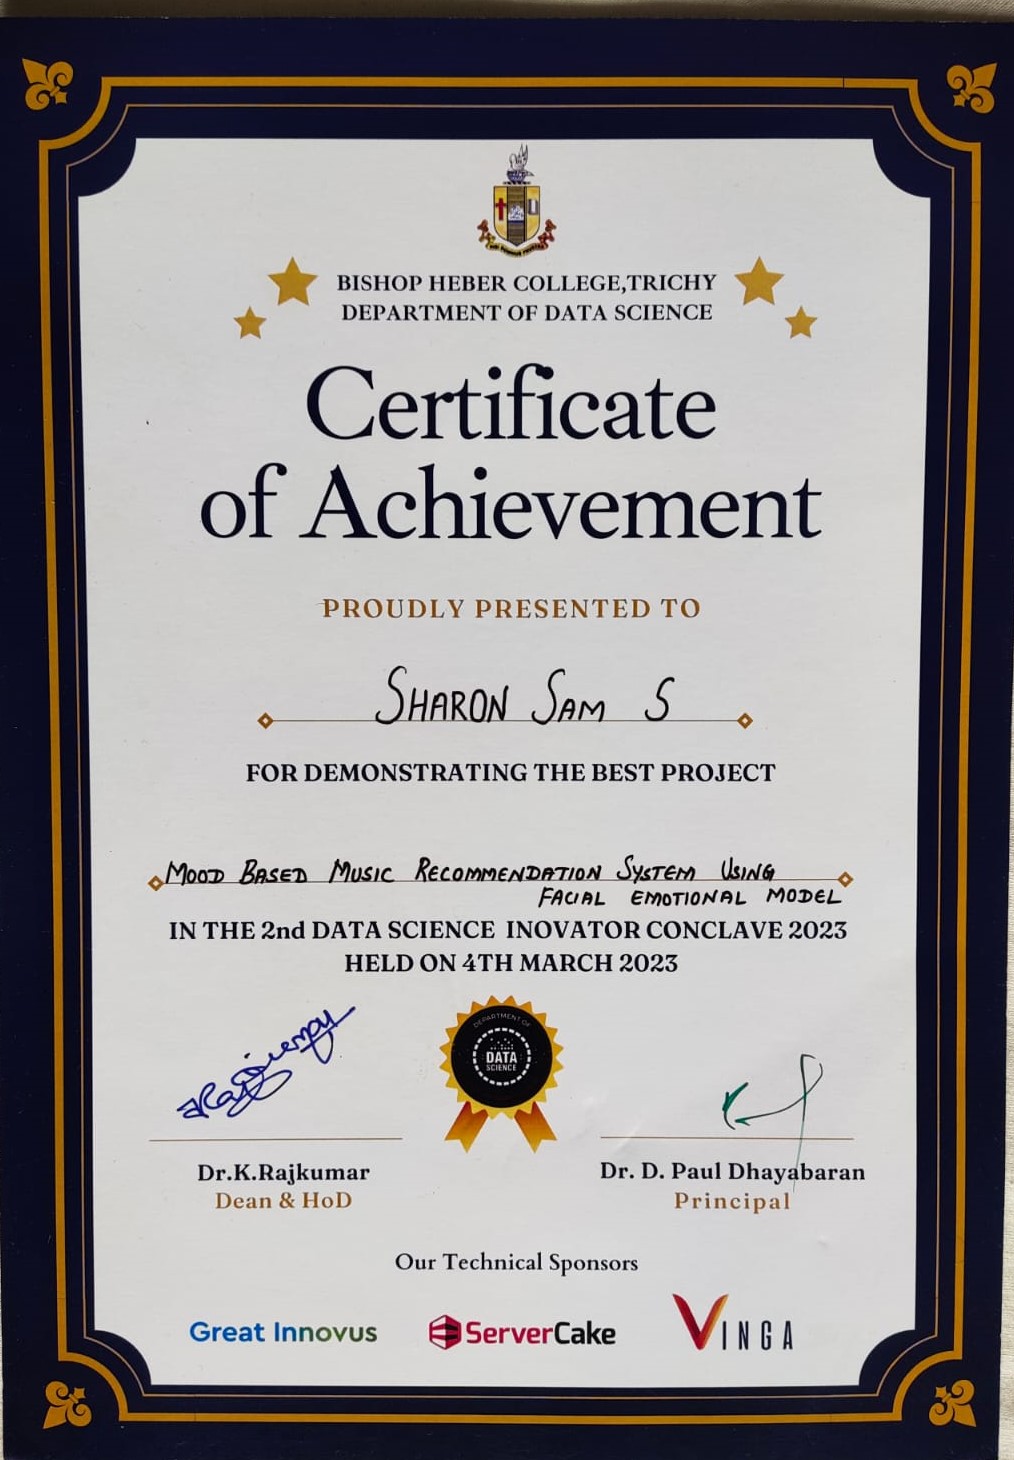 BISHOP HEBER COLLEGE,TRICHY
DEPARTMENT OF DATA SCIENCE
Certificate
of Achievement
PROUDLY PRESENTED TO
SHARON SAM S
FOR DEMONSTRATING THE BEST PROJECT
MOOD BASED MUSIC RECOMMENDATION SYSTEM USING
FACIAL EMOTIONAL MODEL
IN THE 2nd DATA SCIENCE INOVATOR CONCLAVE 2023
HELD ON 4TH MARCH 2023
DEPARTMENT OF
DATA
SCIENCE
Dr.K.Rajkumar
Dean & HoD
Dr. D. Paul Dhayabaran
Principal
Our Technical Sponsors
Great Innovus
ServerCake
VINGA